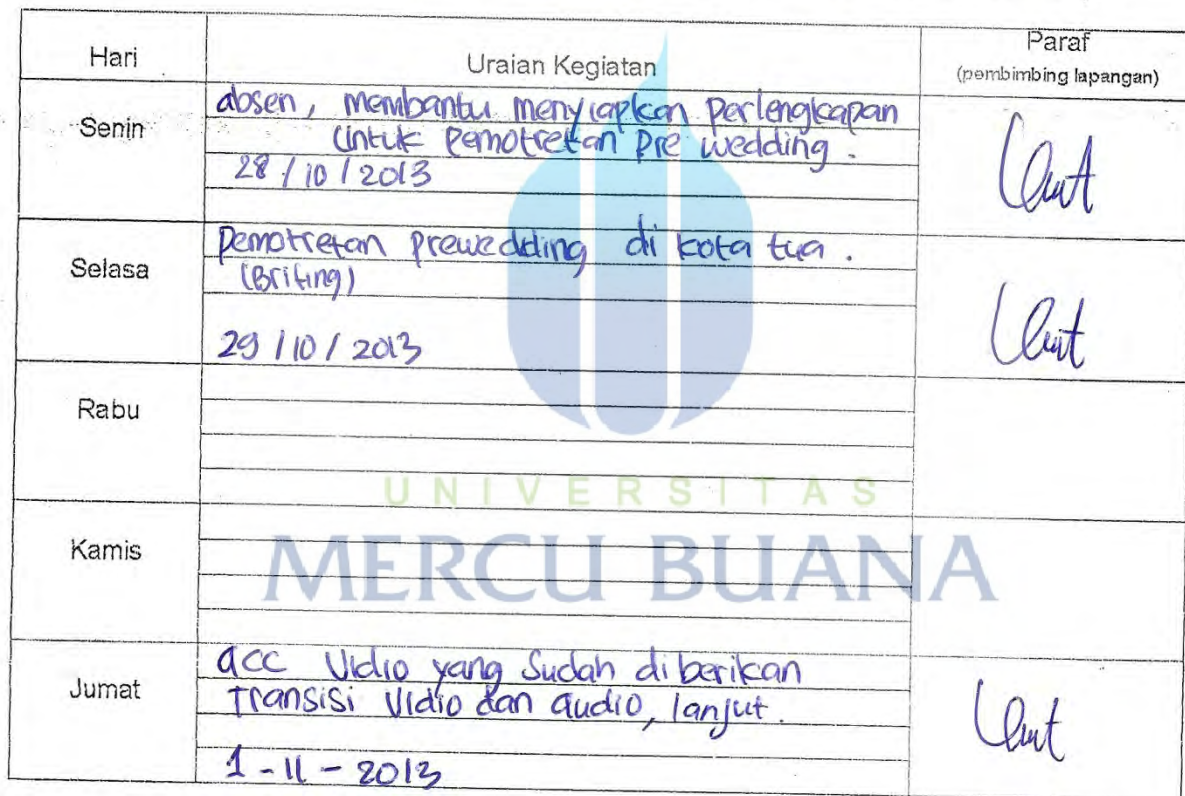 Hari Uraian Kegiatan Paraf
(pembimbing lapangan)
Senin
absen, membantu menyiapkan perlengkapan
untuk pemotretan pre wedding.
28 / 10 / 2013
Selasa
Pemotretan prewedding di kota tua.
(Brifing)
29 / 10 / 2013
Rabu
UNIVERSITAS
Kamis
MERCU BUANA
Jumat
acc Vidio yang Sudah diberikan
Transisi Vidio dan audio, lanjut.
1 - 11 - 2013